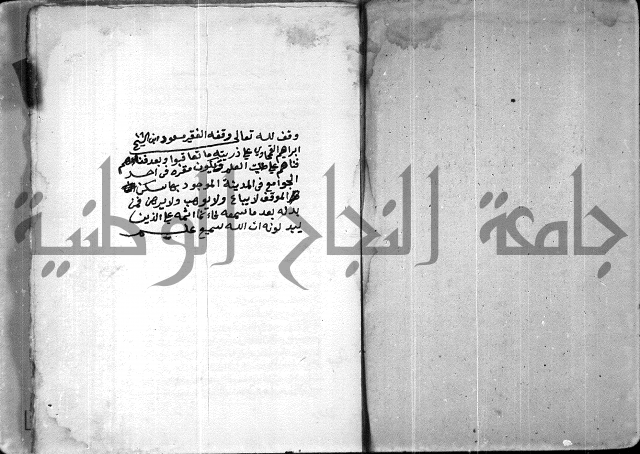 وقف لله تعالى وقفه الفقير مسعود ابن الشيخ
ابراهيم القماوي على ذريته ما تعاقبوا وبعد فنائهم
على طلبة العلم ويكون مقره في احد
الجوامع في المدينة الموجود بها سكن
الموقف لا يباع ولا يوهب ولا يرهن فمن
بدله بعد ما سمعه فانما اثمه على الذين
يبدلونه ان الله سميع عليم
جامعة النجاح الوطنية